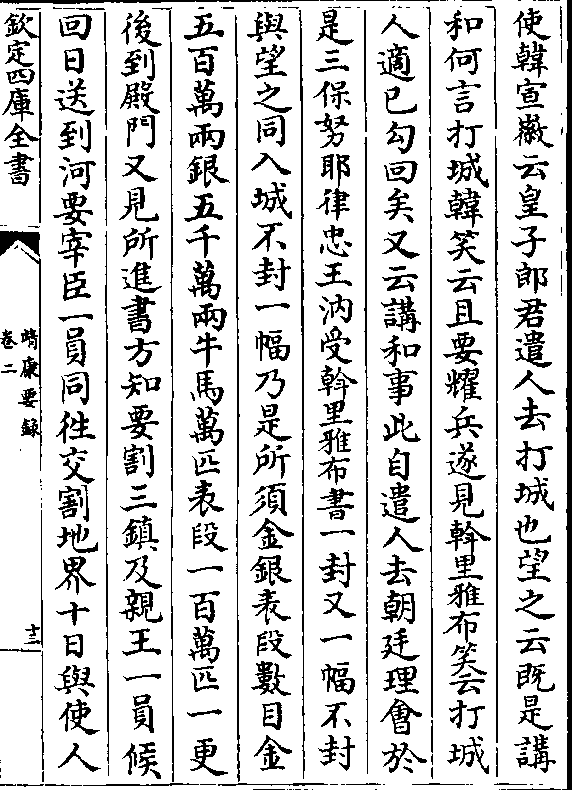 使韓宣徽云皇子郎君遣人去打城也望之云既是講
和何言打城韓笑云且要耀兵遂見斡里雅布笑云打城
人適已勾回矣又云講和事此自遣人去朝廷理會於
是三保努耶律忠王汭受斡里雅布書一封又一幅不封
與望之同入城不封一幅乃是所須金銀表段數目金
五百萬兩銀五千萬兩牛馬萬匹表段一百萬匹一更
後到殿門又見所進書方知要割三鎮及親王一員候
回日送到河要宰臣一員同徃交割地界十日與使人
欽定四庫全書
靖康要録
卷二
十三